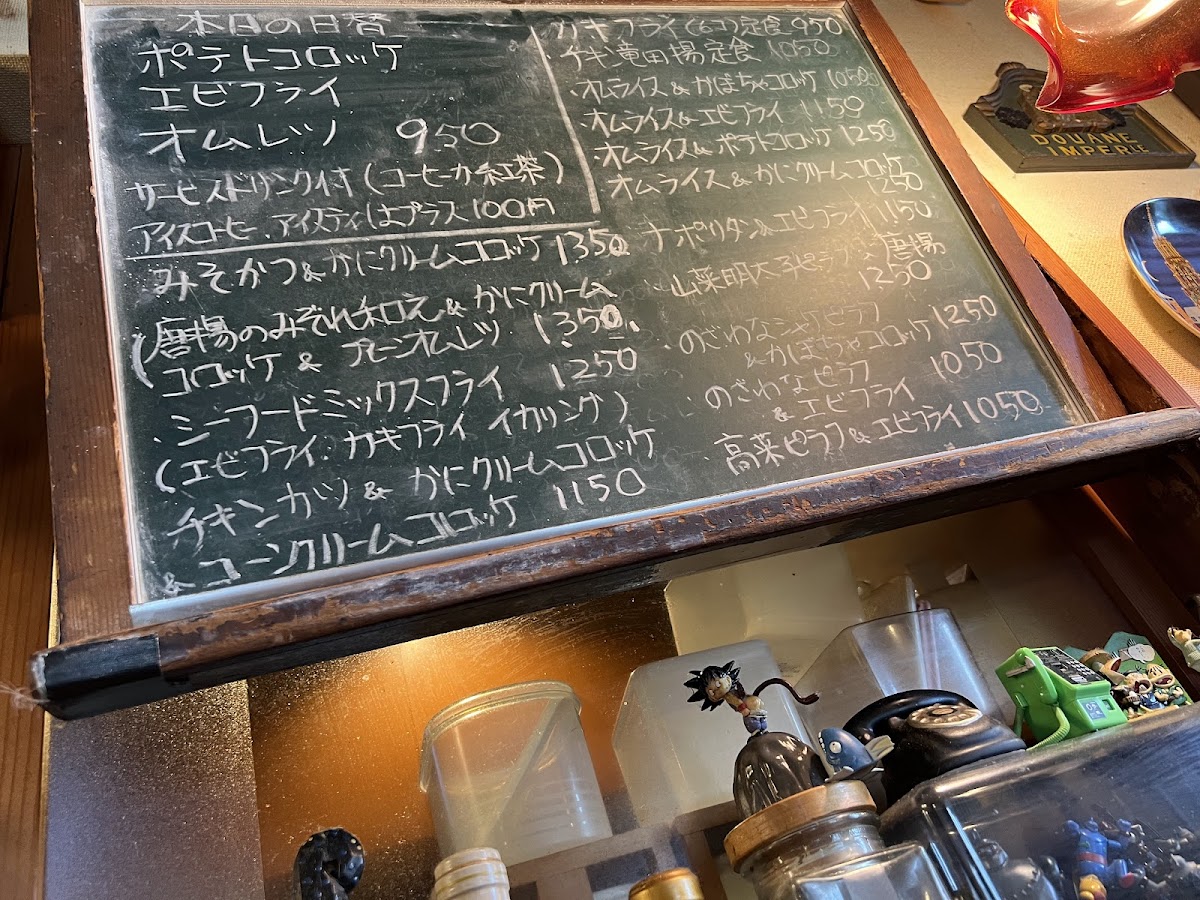 本日の日替
ポテトコロッケ
エビフライ
オムレツ 950
サービスドリンク付 (コーヒーか紅茶)
アイスコーヒー、アイスティはプラス100円
みそかつ&かにクリームコロッケ 1350
唐揚のみぞれ和え&かにクリーム
コロッケ & プレーンオムレツ 1350
・シーフードミックスフライ 1250
(エビフライ、カキフライ イカリング)
チキンカツ& かにクリームコロッケ
&コーンクリームコロッケ 1150
カキフライ(6コ)定食 950
・チキン竜田揚定食 1050
・オムライス&かぼちゃコロッケ 1050
・オムライス&エビフライ 1150
・オムライス& ポテトコロッケ 1250
・オムライス&かにクリームコロッケ
1250
ナポリタン&エビフライ 1150
山菜明太子ピラフ& 唐揚
1250
・のざわなシャケピラフ
&かぼちゃコロッケ 1250
・のざわなピラフ 1050
&エビフライ
・高菜ピラフ&エビフライ 1050
DOUANE
IMPERLE